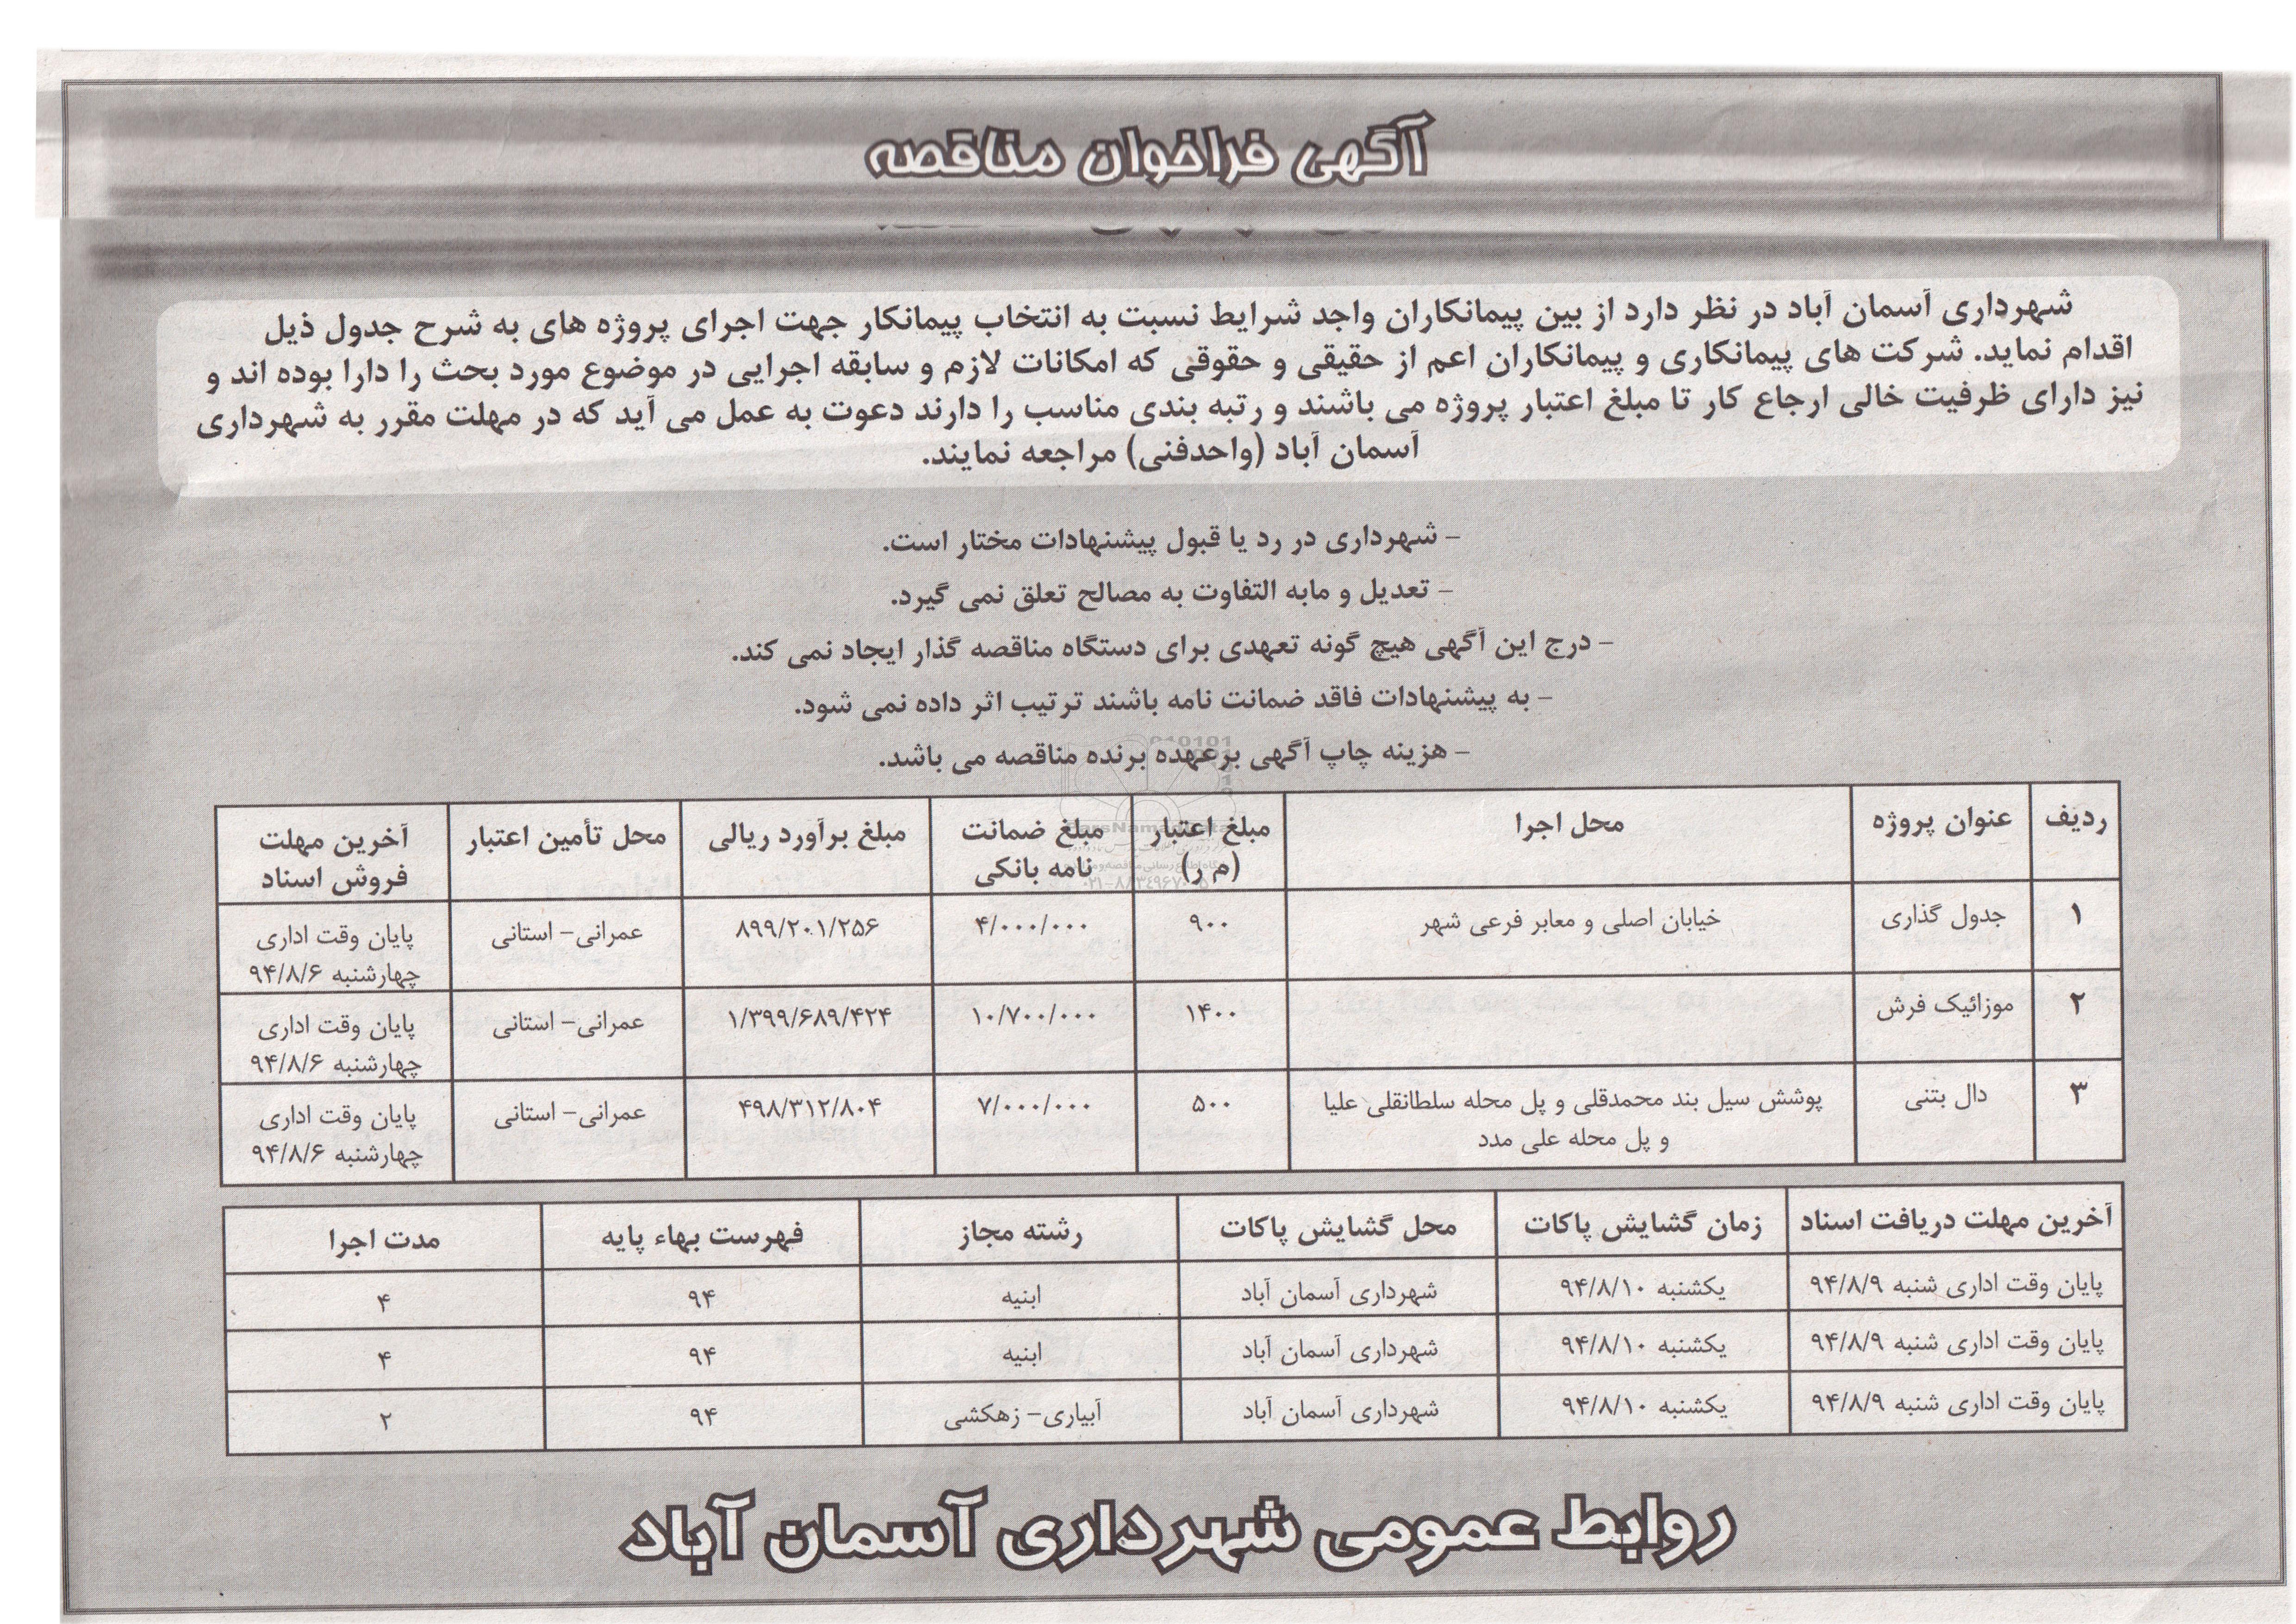 آگهی فراخوان مناقصه
شهرداری آسمان آباد در نظر دارد از بین پیمانکاران واجد شرایط نسبت به انتخاب پیمانکار جهت اجرای پروژه های به شرح جدول ذیل
اقدام نماید. شرکت های پیمانکاری و پیمانکاران اعم از حقیقی و حقوقی که امکانات لازم و سابقه اجرایی در موضوع مورد بحث را دارا بوده اند و
نیز دارای ظرفیت خالی ارجاع کار تا مبلغ اعتبار پروژه می باشند و رتبه بندی مناسب را دارند دعوت به عمل می آید که در مهلت مقرر به شهرداری
آسمان آباد (واحدفنی) مراجعه نمایند.
- شهرداری در رد یا قبول پیشنهادات مختار است.
- تعدیل و مابه التفاوت به مصالح تعلق نمی گیرد.
- درج این آگهی هیچ گونه تعهدی برای دستگاه مناقصه گذار ایجاد نمی کند.
- به پیشنهادات فاقد ضمانت نامه باشند ترتیب اثر داده نمی شود.
- هزینه چاپ آگهی برعهده برنده مناقصه می باشد.
ردیف عنوان پروژه محل اجرا مبلغ اعتبار (م ر) مبلغ ضمانت نامه بانکی مبلغ برآورد ریالی محل تأمین اعتبار آخرین مهلت فروش اسناد
۱ جدول گذاری خیابان اصلی و معابر فرعی شهر ۹۰۰ ۴/۰۰۰/۰۰۰ ۸۹۹/۲۰۱/۲۵۶ عمرانی- استانی پایان وقت اداری چهارشنبه ۹۴/۸/۶
۲ موزائیک فرش ۱۴۰۰ ۱۰/۷۰۰/۰۰۰ ۱/۳۹۹/۶۸۹/۴۲۴ عمرانی- استانی پایان وقت اداری چهارشنبه ۹۴/۸/۶
۳ دال بتنی پوشش سیل بند محمدقلی و پل محله سلطانقلی علیا و پل محله علی مدد ۵۰۰ ۷/۰۰۰/۰۰۰ ۴۹۸/۳۱۲/۸۰۴ عمرانی- استانی پایان وقت اداری چهارشنبه ۹۴/۸/۶
آخرین مهلت دریافت اسناد زمان گشایش پاکات محل گشایش پاکات رشته مجاز فهرست بهاء پایه مدت اجرا
پایان وقت اداری شنبه ۹۴/۸/۹ یکشنبه ۹۴/۸/۱۰ شهرداری آسمان آباد ابنیه ۹۴ ۴
پایان وقت اداری شنبه ۹۴/۸/۹ یکشنبه ۹۴/۸/۱۰ شهرداری آسمان آباد ابنیه ۹۴ ۴
پایان وقت اداری شنبه ۹۴/۸/۹ یکشنبه ۹۴/۸/۱۰ شهرداری آسمان آباد آبیاری- زهکشی ۹۴ ۲
روابط عمومی شهرداری آسمان آباد